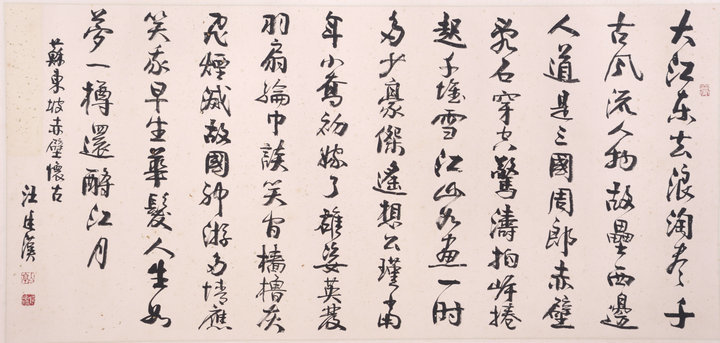 大江東去浪淘盡千
古風流人物故壘西邊
人道是三國周郎赤壁
亂石穿空驚濤拍岸捲
起千堆雪江山如畫一時
多少豪傑遙想公瑾當
年小喬初嫁了雄姿英發
羽扇綸巾談笑間檣櫓灰
飛煙滅故國神游多情應
笑我早生華髮人生如
夢一樽還酹江月
蘇東坡赤壁懷古